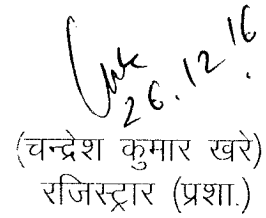 26.12.16
(चन्द्रेश कुमार खरे)
रजिस्ट्रार (प्रशा.)